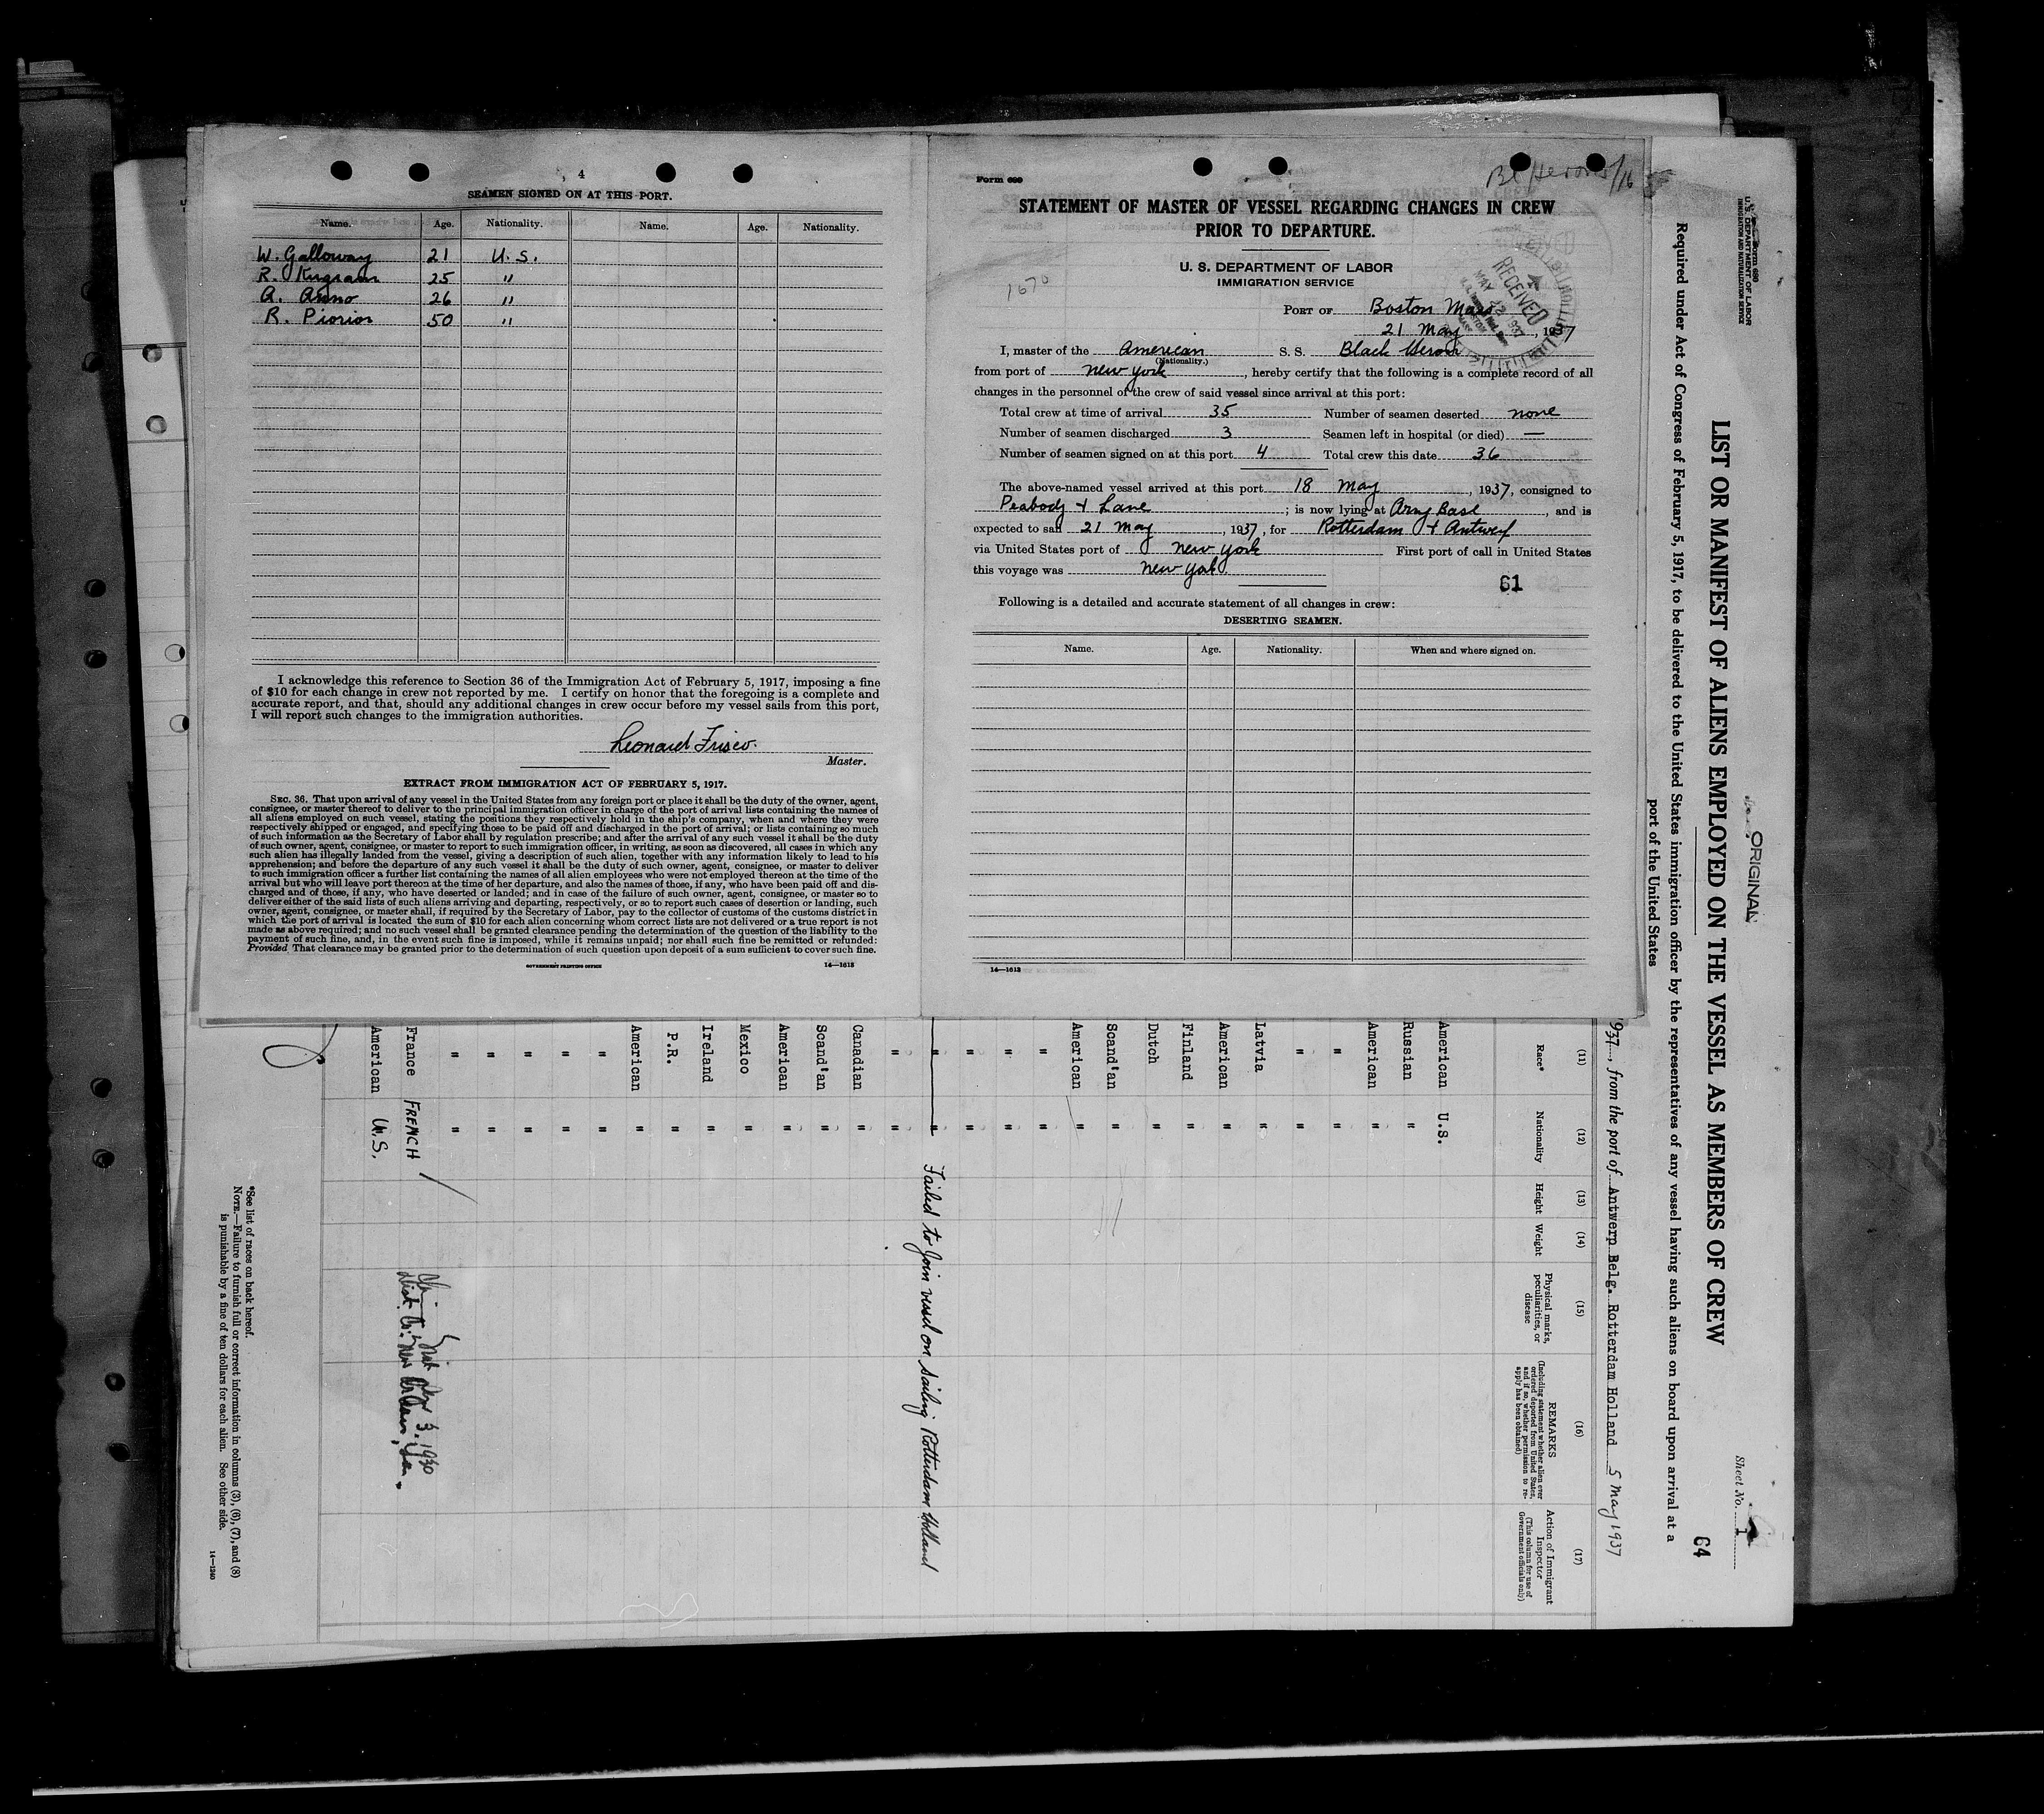 4
SEAMEN SIGNED ON AT THIS PORT.
Name. Age. Nationality. Name. Age. Nationality.
W. Galloway 21 U.S.
R. 25 "
A. 26 "
R. 50 "
I acknowledge this reference to Section 36 of the Immigration Act of February 5, 1917, imposing a fine
of $10 for each change in crew not reported by me. I certify on honor that the foregoing is a complete and
accurate report, and that, should any additional changes in crew occur before my vessel sails from this port,
I will report such changes to the immigration authorities.
Leonard
Master.
EXTRACT FROM IMMIGRATION ACT OF FEBRUARY 5, 1917.
SEC. 36. That upon arrival of any vessel in the United States from any foreign port or place it shall be the duty of the owner, agent,
consignee, or master thereof to deliver to the principal immigration officer in charge of the port of arrival lists containing the names of
all aliens employed on such vessel, stating the positions they respectively hold in the ship's company, when and where they were
respectively shipped or engaged, and specifying those to be paid off and discharged in the port of arrival; or lists containing so much
of such information as the Secretary of Labor shall by regulation prescribe; and after the arrival of any such vessel it shall be the duty
of such owner, agent, consignee, or master to report to such immigration officer, in writing, as soon as discovered, all cases in which any
such alien has illegally landed from the vessel, giving a description of such alien, together with any information likely to lead to his
apprehension; and before the departure of any such vessel it shall be the duty of such owner, agent, consignee, or master to deliver
to such immigration officer a further list containing the names of all alien employees who were not employed thereon at the time of the
arrival but who will leave port thereon at the time of her departure, and also the names of those, if any, who have been paid off and dis-
charged and of those, if any, who have deserted or landed; and in case of the failure of such owner, agent, consignee, or master so to
deliver either of the said lists of such aliens arriving and departing, respectively, or so to report such cases of desertion or landing, such
owner, agent, consignee, or master shall, if required by the Secretary of Labor, pay to the collector of customs of the customs district in
which the port of arrival is located the sum of $10 for each alien concerning whom correct lists are not delivered or a true report is not
made as above required; and no such vessel shall be granted clearance pending the determination of the question of the liability to the
payment of such fine, and, in the event such fine is imposed, while it remains unpaid; nor shall such fine be remitted or refunded:
Provided That clearance may be granted prior to the determination of such question upon deposit of a sum sufficient to cover such fine.
GOVERNMENT PRINTING OFFICE 14—1613
Form 689
Bl Heron 5/16
STATEMENT OF MASTER OF VESSEL REGARDING CHANGES IN CREW
PRIOR TO DEPARTURE.
U. S. DEPARTMENT OF LABOR
IMMIGRATION SERVICE
1670
RECEIVED
MAY 22 1937
PORT OF Boston Mass
21 May, 1937
I, master of the American S. S. Black Heron
(Nationality.)
from port of New York, hereby certify that the following is a complete record of all
changes in the personnel of the crew of said vessel since arrival at this port:
Total crew at time of arrival 35 Number of seamen deserted none
Number of seamen discharged 3 Seamen left in hospital (or died) —
Number of seamen signed on at this port 4 Total crew this date 36
The above-named vessel arrived at this port 18 May, 1937, consigned to
Peabody + Lane; is now lying at Army Base, and is
expected to sail 21 May, 1937, for Rotterdam + Antwerp
via United States port of New York First port of call in United States
this voyage was New York
61
Following is a detailed and accurate statement of all changes in crew:
DESERTING SEAMEN.
Name. Age. Nationality. When and where signed on.
14—1613
U. S. DEPARTMENT OF LABOR
IMMIGRATION AND NATURALIZATION SERVICE
ORIGINAL
Sheet No. 1
LIST OR MANIFEST OF ALIENS EMPLOYED ON THE VESSEL AS MEMBERS OF CREW
64
Required under Act of Congress of February 5, 1917, to be delivered to the United States immigration officer by the representatives of any vessel having such aliens on board upon arrival at a
port of the United States
1937, from the port of Antwerp Belg. Rotterdam Holland 5 May 1937
(11) (12) (13) (14) (15) (16) (17)
Race* Nationality Height Weight Physical marks, peculiarities, or disease REMARKS (Including statement whether alien ever ordered deported from United States, and if so, whether permission to re-apply has been obtained) Action of Immigrant Inspector (This column for use of Government officials only)
American U.S.
Russian "
American "
" "
" "
Latvia "
American "
Finland "
Dutch "
Scand'an "
American "
" "
" "
" "
" " Failed to Join vessel on sailing Rotterdam Holland
" "
Canadian "
Scand'an "
American "
Mexico "
Ireland "
P.R. "
American "
" "
" "
" "
" "
" "
France FRENCH
3, 1930
Dist. New
American U.S.
*See list of races on back hereof.
NOTE.—Failure to furnish full or correct information in columns (3), (6), (7), and (8)
is punishable by a fine of ten dollars for each alien. See other side.
14—1240